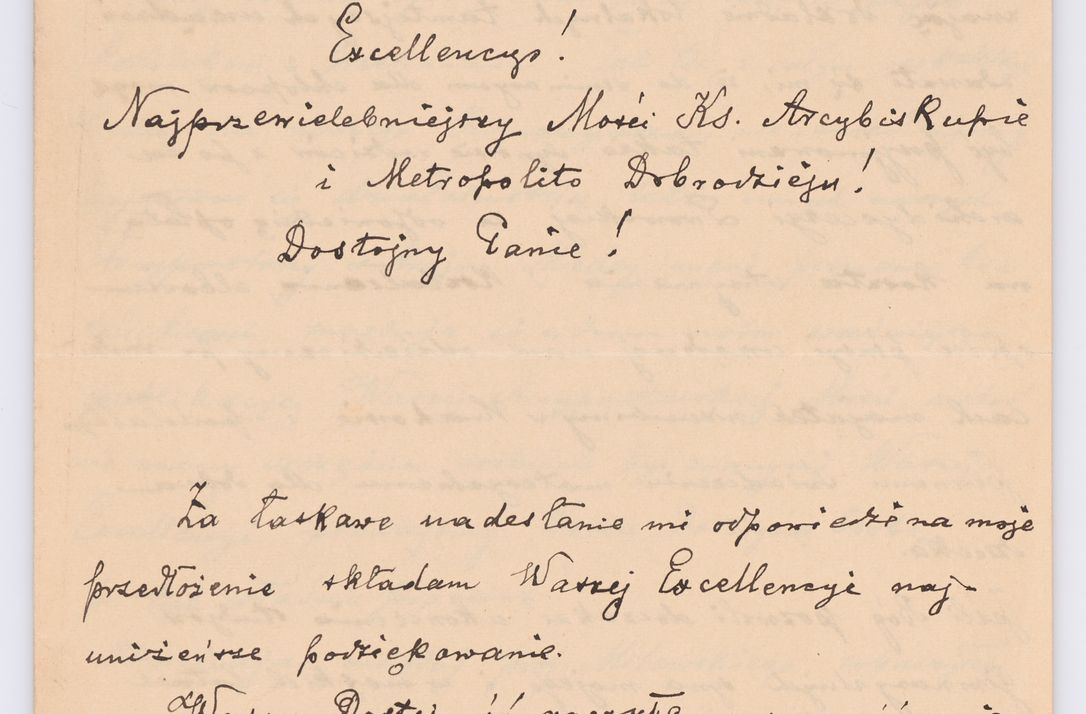 Excellencyo!
Najprzewielebniejszy Mości Ks. Arcybiskupie
i Metropolito Dobrodzieju!
Dostojny Panie!
Za łaskawe nadesłanie mi odpowiedzi na moje
przedłożenie składam Waszej Excellencyi naj-
uniżeńsze podziękowanie.